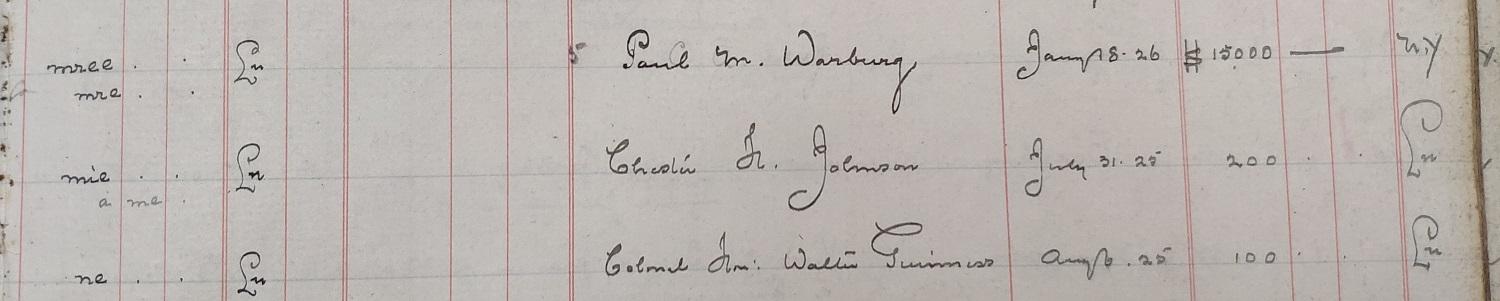 mree . . Ln 5 Paul M. Warburg Jany 18. 26 $ 15000 — N.Y
mre . .
mie . . Ln H. Johnson July 31. 25 200 . . Ln
a me .
ne . . Ln Colonel Hon: Walter Guinness Aug 6. 25 100 . . Ln